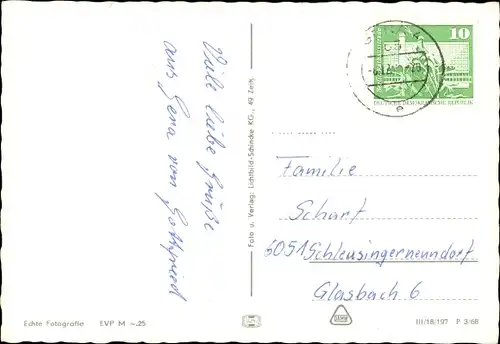 Viele liebe Grüße
aus Gera von Gottfried
Foto u. Verlag: Lichtbild-Schincke KG., 49 Zeitz
10
DEUTSCHE DEMOKRATISCHE REPUBLIK
e
Familie
Scharf
6051 Schleusingerneundorf
Glasbach 6
Echte Fotografie EVP M -.25
III/18/197 P 3/68